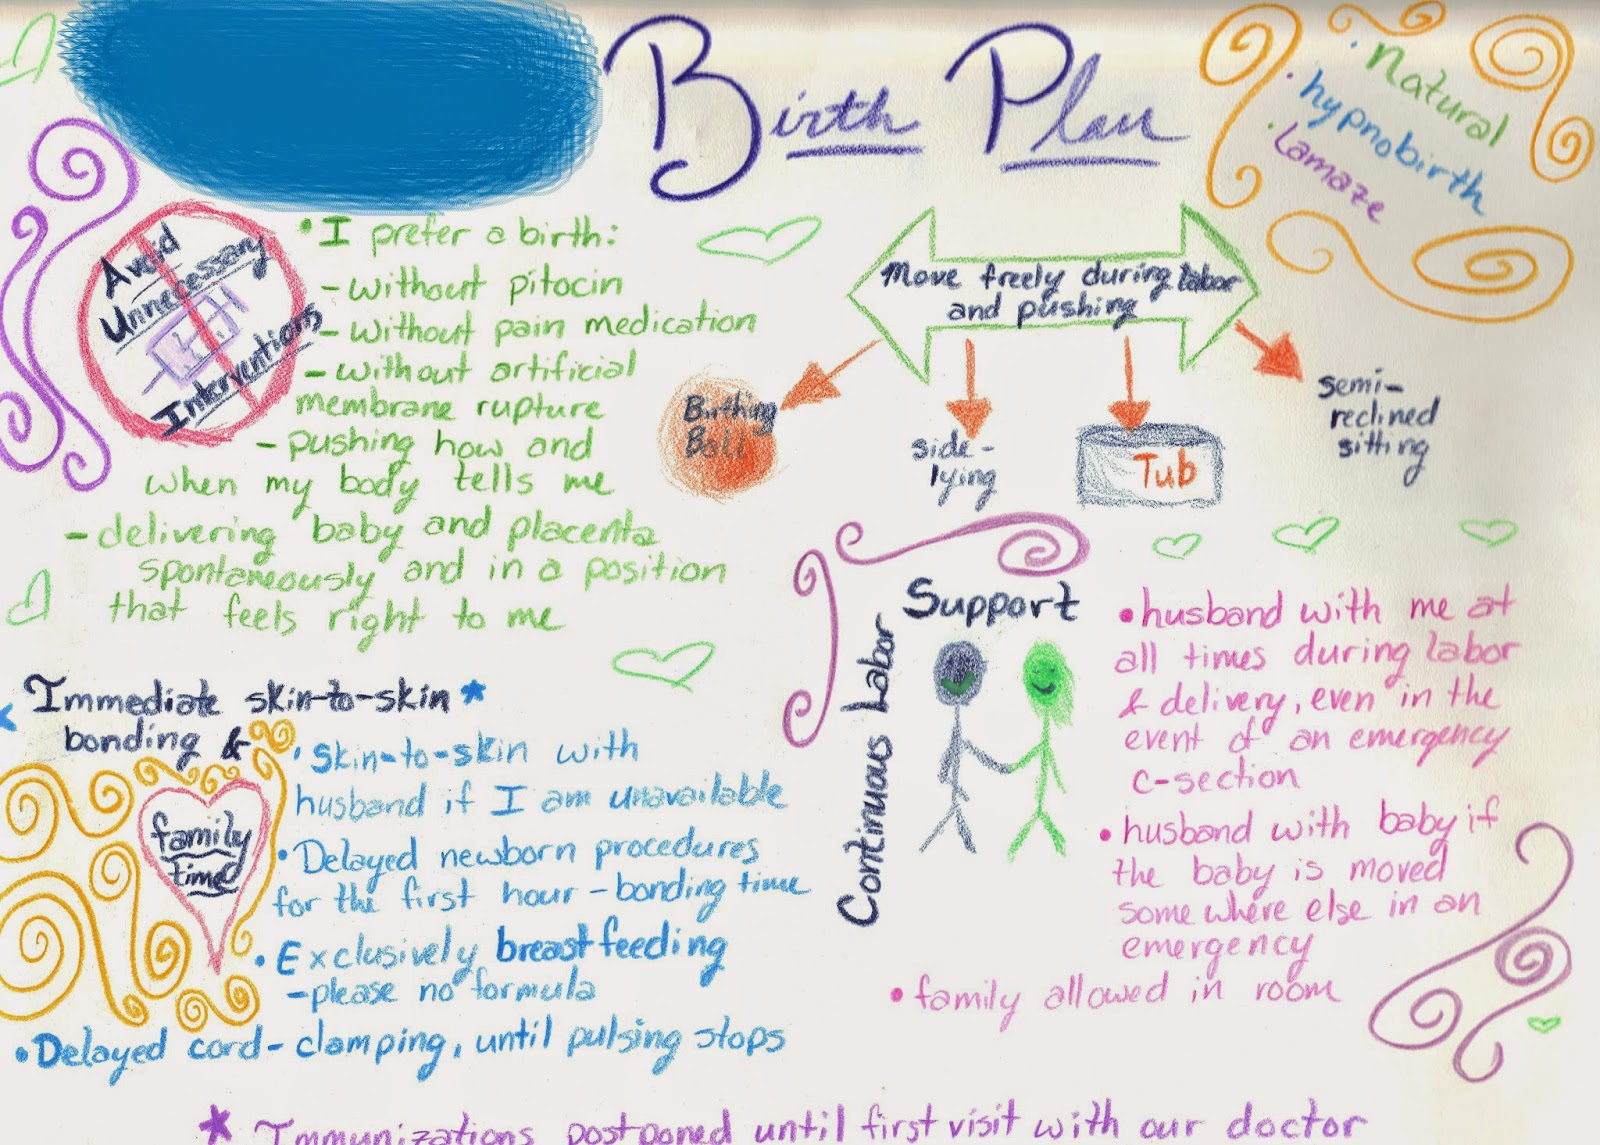 Birth Plan
• Natural
• hypnobirth
• Lamaze
Avoid
Unnecessary
Interventions
• I prefer a birth:
- without pitocin
- without pain medication
- without artificial
membrane rupture
- pushing how and
when my body tells me
- delivering baby and placenta
spontaneously and in a position
that feels right to me
Move freely during labor
and pushing
Birthing
Ball
side-
lying
Tub
semi-
reclined
sitting
Continuous Labor
Support
• husband with me at
all times during labor
& delivery, even in the
event of an emergency
c-section
• husband with baby if
the baby is moved
somewhere else in an
emergency
• family allowed in room
Immediate skin-to-skin
bonding &
family
time
• Skin-to-skin with
husband if I am unavailable
• Delayed newborn procedures
for the first hour - bonding time
• Exclusively breastfeeding
- please no formula
• Delayed cord-clamping, until pulsing stops
Immunizations postponed until first visit with our doctor